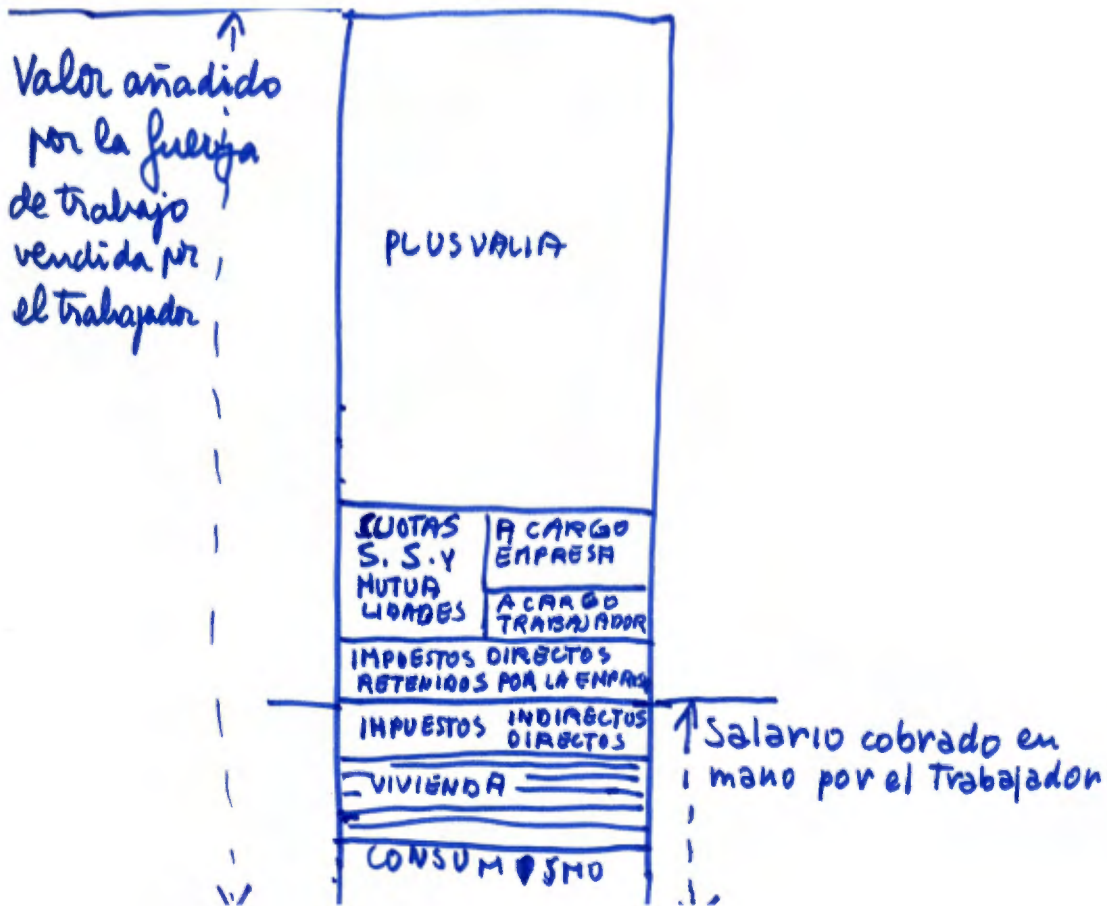 Valor añadido
por la fuerza
de trabajo
vendida por
el trabajador
PLUSVALIA
CUOTAS
S. S. Y
MUTUA
LIDADES
A CARGO
EMPRESA
A CARGO
TRABAJADOR
IMPUESTOS DIRECTOS
RETENIDOS POR LA EMPRESA
IMPUESTOS INDIRECTOS
DIRECTOS
Salario cobrado en
mano por el Trabajador
VIVIENDA
CONSUMISMO